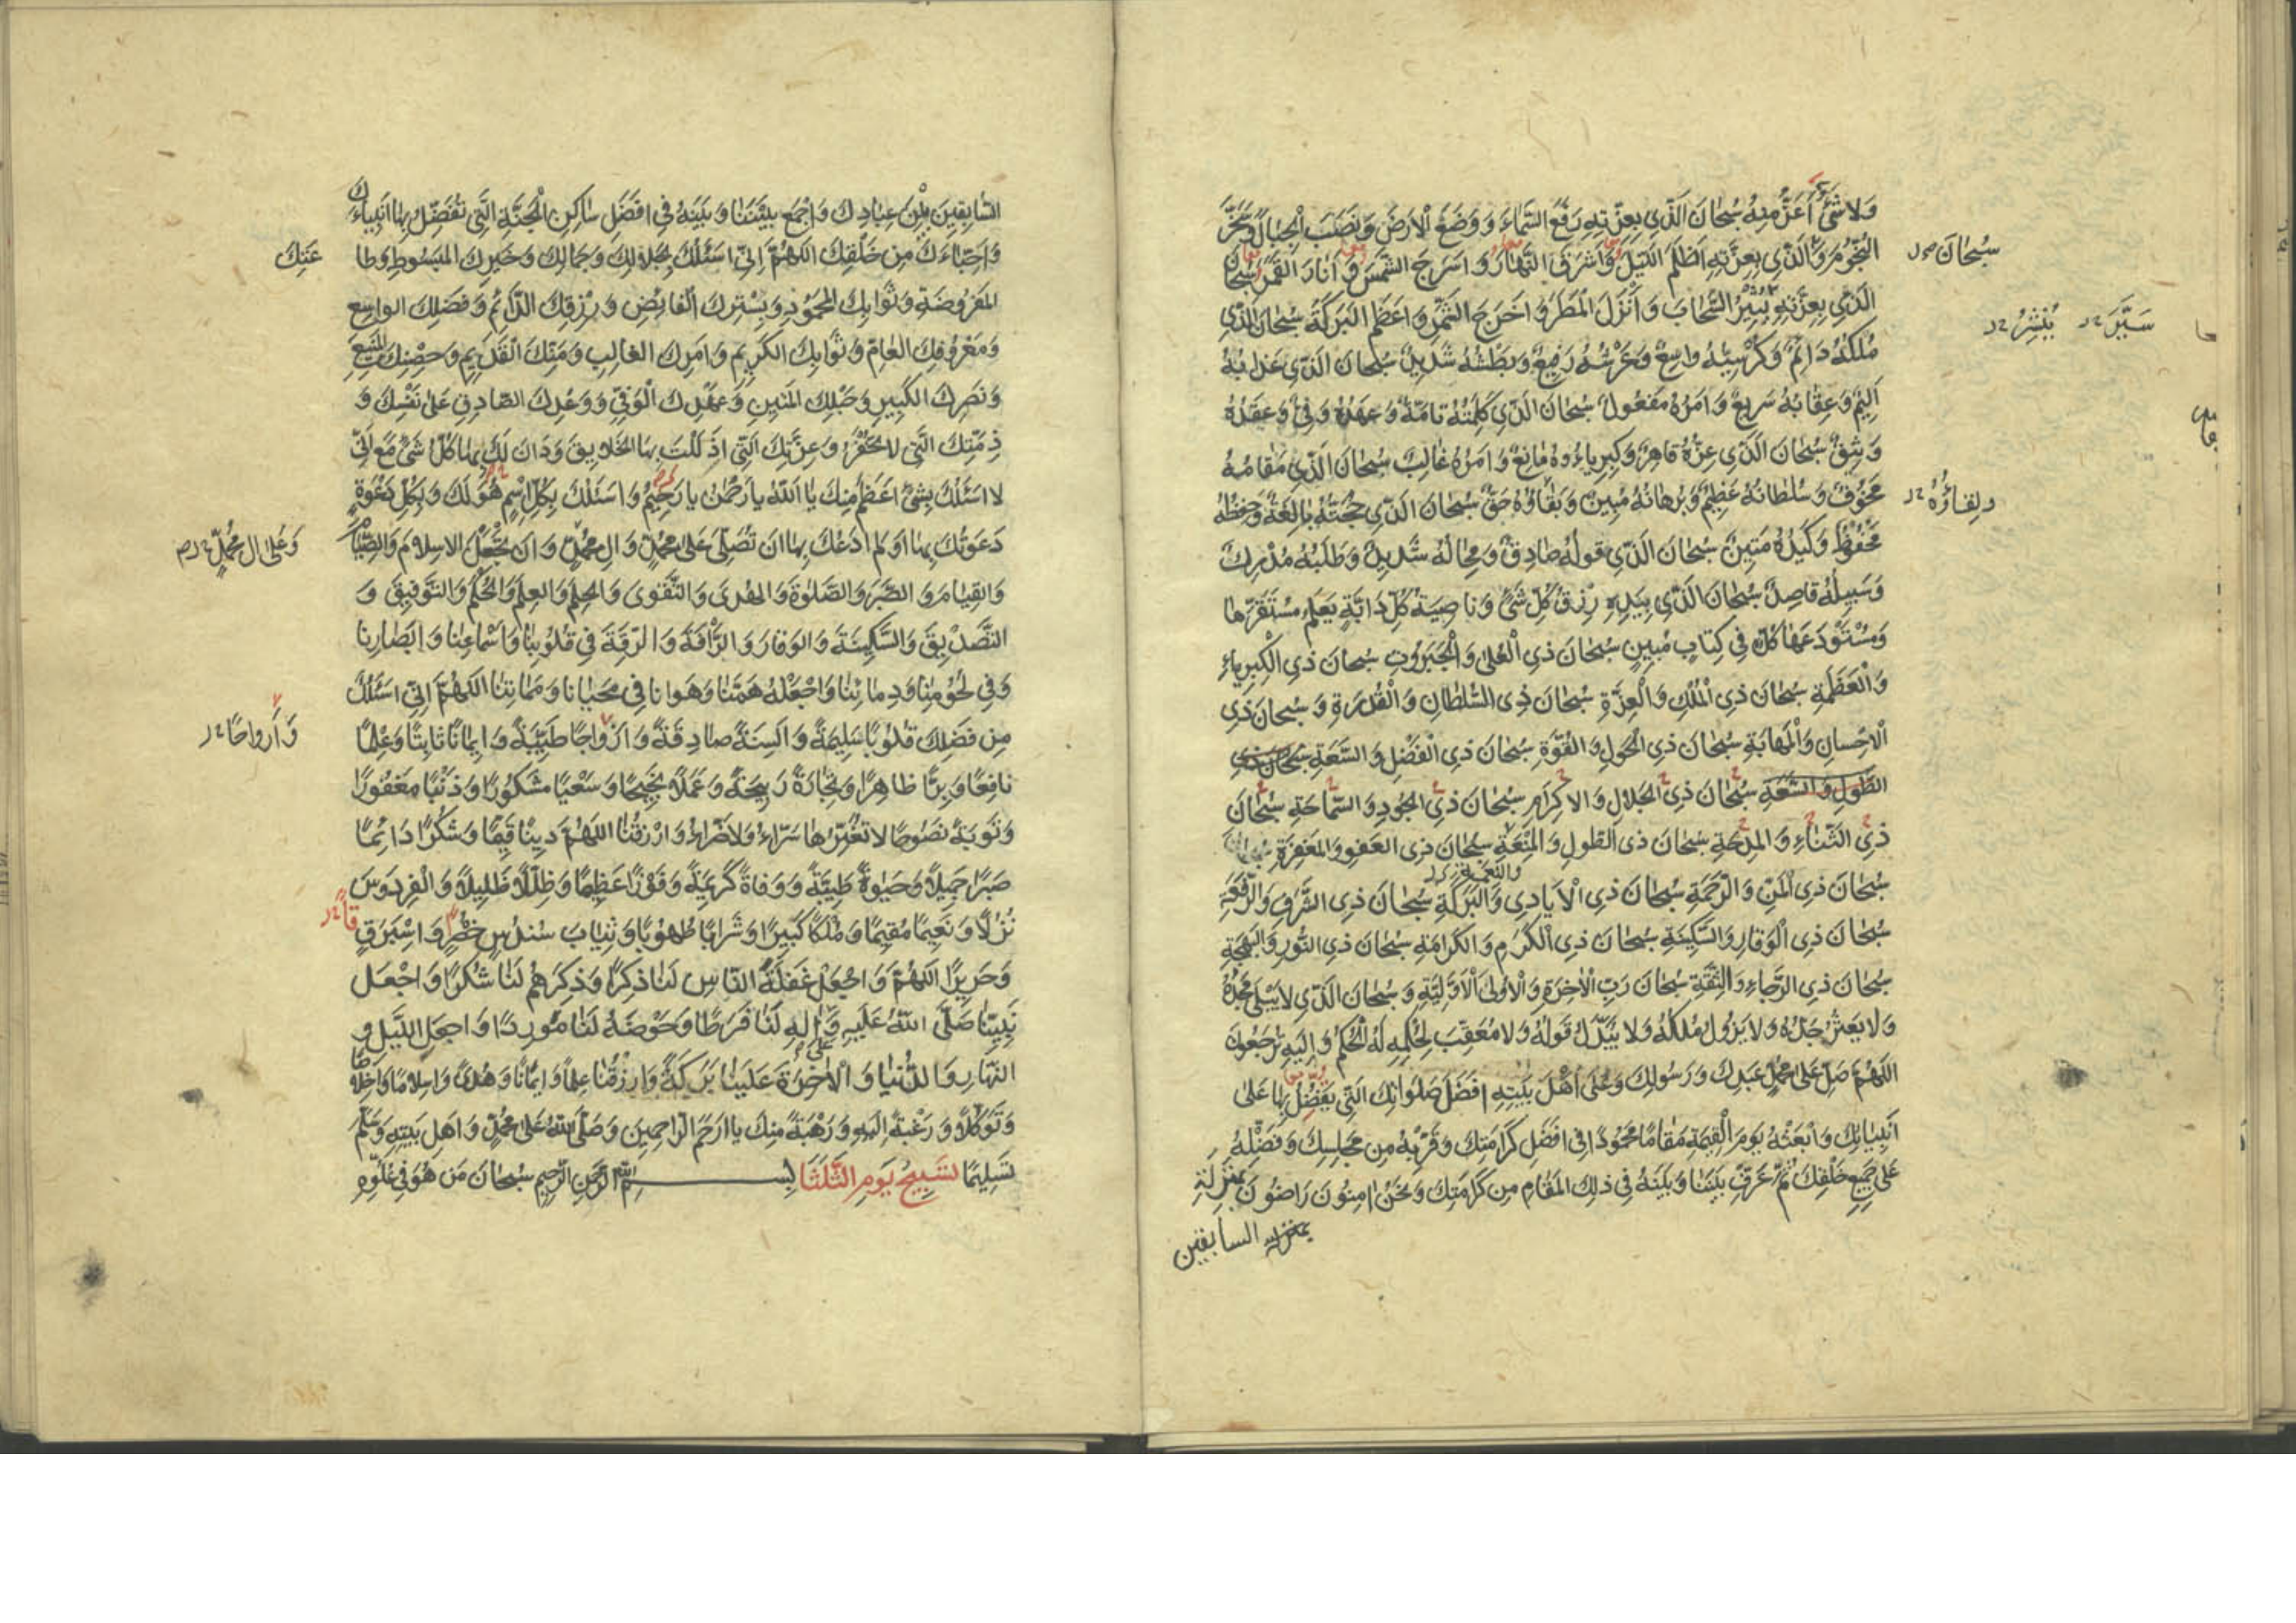 وَلا شَیْءَ أَعَزُّ مِنْهُ سُبْحَانَ الَّذِي بِعِزَّتِهِ رَفَعَ السَّمَاءَ وَوَضَعَ الْأَرْضَ وَنَصَبَ الْجِبَالَ وَسَخَّرَ
النُّجُومَ وَالَّذِي بِعِزَّتِهِ أَظْلَمَ اللَّيْلَ وَأَشْرَقَ النَّهَارُ وَأَسْرَجَ الشَّمْسَ وَأَنَارَ الْقَمَرَ سُبْحَانَ
سُبْحَانَ
الَّذِي بِعِزَّتِهِ يُثِيرُ السَّحَابَ وَأَنْزَلَ الْمَطَرَ وَأَخْرَجَ الثَّمَرَ وَأَعْظَمَ الْبَرَكَةَ سُبْحَانَ الَّذِي
سَيَّرَ يُنْشِرُ
مُلْكُهُ دَائِمٌ وَكُرْسِيُّهُ وَاسِعٌ وَعَرْشُهُ رَفِيعٌ وَبَطْشُهُ شَدِيدٌ سُبْحَانَ الَّذِي عَذَابُهُ
أَلِيمٌ وَعِقَابُهُ سَرِيعٌ وَأَمْرُهُ مَفْعُولٌ سُبْحَانَ الَّذِي كَلِمَتُهُ تَامَّةٌ وَعَهْدُهُ وَفِيٌّ وَعَقْدُهُ
وَثِيقٌ سُبْحَانَ الَّذِي عِزُّهُ قَاهِرٌ وَكِبْرِيَاءُوهُ مَانِعٌ وَأَمْرُهُ غَالِبٌ سُبْحَانَ الَّذِي مَقَامُهُ
مَخُوفٌ وَسُلْطَانُهُ عَظِيمٌ وَبُرْهَانُهُ مُبِينٌ وَبَقَاؤُهُ حَقٌّ سُبْحَانَ الَّذِي حُجَّتُهُ بَالِغَةٌ وَحِفْظُهُ
وَلِقَاؤُهُ
مَحْفُوظٌ وَكَيْدُهُ مَتِينٌ سُبْحَانَ الَّذِي قَوْلُهُ صَادِقٌ وَمِحَالُهُ شَدِيدٌ وَطَلَبُهُ مُدْرِكٌ
وَسَبِيلُهُ قَاصِدٌ سُبْحَانَ الَّذِي بِيَدِهِ رِزْقُ كُلِّ شَيْءٍ وَنَاصِيَةُ كُلِّ دَابَّةٍ يَعْلَمُ مُسْتَقَرَّهَا
وَمُسْتَوْدَعَهَا كُلٌّ فِي كِتَابٍ مُبِينٍ سُبْحَانَ ذِي الْعُلَى وَالْجَبَرُوتِ سُبْحَانَ ذِي الْكِبْرِيَاءِ
وَالْعَظَمَةِ سُبْحَانَ ذِي الْمُلْكِ وَالْعِزَّةِ سُبْحَانَ ذِي السُّلْطَانِ وَالْقُدْرَةِ وَسُبْحَانَ ذِي
الْإِحْسَانِ وَالْمَهَابَةِ سُبْحَانَ ذِي الْحَوْلِ وَالْقُوَّةِ سُبْحَانَ ذِي الْفَضْلِ وَالسَّعَةِ سُبْحَانَ ذِي
الطَّوْلِ وَالسَّعَةِ سُبْحَانَ ذِي الْجَلَالِ وَالْإِكْرَامِ سُبْحَانَ ذِي الْجُودِ وَالسَّمَاحَةِ سُبْحَانَ
ذِي الثَّنَاءِ وَالْمِدْحَةِ سُبْحَانَ ذِي الطَّوْلِ وَالْمَنْعَةِ سُبْحَانَ ذِي الْعَفْوِ وَالْمَغْفِرَةِ
سُبْحَانَ ذِي الْمَنِّ وَالرَّحْمَةِ سُبْحَانَ ذِي الْأَيَادِي وَالْبَرَكَةِ سُبْحَانَ ذِي الشَّرَفِ وَالرِّفْعَةِ
سُبْحَانَ ذِي الْوَقَارِ وَالسَّكِينَةِ سُبْحَانَ ذِي الْكَرَمِ وَالْكَرَامَةِ سُبْحَانَ ذِي النُّورِ وَالْبَهْجَةِ
سُبْحَانَ ذِي الرَّجَاءِ وَالثِّقَةِ سُبْحَانَ رَبِّ الْآخِرَةِ وَالْأُولَى الْأَوَّلِيَّةِ وَسُبْحَانَ الَّذِي لَا يَبْلَى مَجْدُهُ
وَلَا يَعْثُرُ جَدُّهُ وَلَا يَزُولُ مُلْكُهُ وَلَا يُبَدَّلُ قَوْلُهُ وَلَا مُعَقِّبَ لِحُكْمِهِ لَهُ الْحُكْمُ وَإِلَيْهِ تُرْجَعُونَ
اللَّهُمَّ صَلِّ عَلَى مُحَمَّدٍ عَبْدِكَ وَرَسُولِكَ وَعَلَى أَهْلِ بَيْتِهِ أَفْضَلَ صَلَوَاتِكَ الَّتِي تُفَضِّلُ بِهَا عَلَى
أَنْبِيَائِكَ وَابْعَثْهُ يَوْمَ الْقِيٰمَةِ مَقَامًا مَحْمُودًا فِي أَفْضَلِ كَرَامَتِكَ وَقَرِّبْهُ مِنْ مَجَالِسِكَ وَفَضِّلْهُ
عَلَى جَمِيعِ خَلْقِكَ ثُمَّ عَرِّفْ بَيْنَنَا وَبَيْنَهُ فِي ذَلِكَ الْمَقَامِ مِنْ كَرَامَتِكَ وَنَحْنُ آمِنُونَ رَاضُونَ بِمَنْزِلَةِ
بمنزلة السابقين
السَّابِقِينَ مِنْ عِبَادِكَ وَاجْمَعْ بَيْنَنَا وَبَيْنَهُ فِي أَفْضَلِ مَسَاكِنِ الْجَنَّةِ الَّتِي تُفَضِّلُ بِهَا أَنْبِيَاءَكَ
وَأَحِبَّاءَكَ مِنْ خَلْقِكَ اللَّهُمَّ إِنِّي أَسْئَلُكَ بِجَلَالِكَ وَجَمَالِكَ وَخَيْرِكَ الْمَبْسُوطِ وَطَا
عَتِكَ
الْمَفْرُوضَةِ وَثَوَابِكَ الْمَحْمُودِ وَبِسِتْرِكَ الْفَائِضِ وَرِزْقِكَ الدَّائِمِ وَفَضْلِكَ الْوَاسِعِ
وَمَعْرُوفِكَ الْعَامِّ وَثَوَابِكَ الْكَرِيمِ وَأَمْرِكَ الْغَالِبِ وَمَنِّكَ الْقَدِيمِ وَحِصْنِكَ الْمَنِيعِ
وَنَصْرِكَ الْكَبِيرِ وَحَبْلِكَ الْمَتِينِ وَعَهْدِكَ الْوَفِيِّ وَوَعْدِكَ الصَّادِقِ عَلَى نَفْسِكَ وَ
ذِمَّتِكَ الَّتِي لَا تُخْفَرُ وَعِزَّتِكَ الَّتِي أَذْلَلْتَ بِهَا الْخَلَايِقَ وَدَانَ لَكَ بِهَا كُلُّ شَيْءٍ مَعَ أَنِّي
لَا أَسْئَلُكَ بِشَيْءٍ أَعْظَمَ مِنْكَ يَا اللَّهُ يَا رَحْمٰنُ يَا رَحِيمُ وَأَسْئَلُكَ بِكُلِّ اسْمٍ هُوَ لَكَ وَبِكُلِّ دَعْوَةٍ
دَعَوْتُكَ بِهَا أَوْ لَمْ أَدْعُكَ بِهَا أَنْ تُصَلِّيَ عَلَى مُحَمَّدٍ وَآلِ مُحَمَّدٍ وَأَنْ تَجْعَلَ الْإِسْلَامَ وَالصِّيَامَ
وَعَلَى آلِ مُحَمَّدٍ
وَالْقِيَامَ وَالصَّبْرَ وَالصَّلٰوةَ وَالْهُدَى وَالتَّقْوَى وَالْحِلْمَ وَالْعِلْمَ وَالْحُكْمَ وَالتَّوْفِيقَ وَ
التَّصْدِيقَ وَالسَّكِينَةَ وَالْوَقَارَ وَالرَّأْفَةَ وَالرِّقَّةَ فِي قُلُوبِنَا وَأَسْمَاعِنَا وَأَبْصَارِنَا
وَفِي لُحُومِنَا وَدِمَائِنَا وَاجْعَلْهُ هَمَّنَا وَهَوَانَا فِي مَحْيَانَا وَمَمَاتِنَا اللَّهُمَّ إِنِّي أَسْئَلُكَ
مِنْ فَضْلِكَ قُلُوبًا سَلِيمَةً وَأَلْسِنَةً صَادِقَةً وَأَزْوَاجًا طَيِّبَةً وَإِيمَانًا ثَابِتًا وَعِلْمًا
وَأَرْوَاحًا
نَافِعًا وَبِرًّا ظَاهِرًا وَتِجَارَةً رَبِيحَةً وَعَمَلًا نَجِيحًا وَسَعْيًا مَشْكُورًا وَذَنْبًا مَغْفُورًا
وَتَوْبَةً نَصُوحًا لَا تُغَيِّرُهَا سَرَّاءُ وَلَا ضَرَّاءُ وَارْزُقْنَا اللَّهُمَّ دِينًا قَيِّمًا وَشُكْرًا دَائِمًا
صَبْرًا جَمِيلًا وَحَيٰوةً طَيِّبَةً وَوَفَاةً كَرِيمَةً وَفَوْزًا عَظِيمًا وَظِلًّا ظَلِيلًا وَالْفِرْدَوْسَ
نُزُلًا وَنَعِيمًا مُقِيمًا وَمُلْكًا كَبِيرًا وَشَرَابًا طَهُورًا وَثِيَابَ سُنْدُسٍ خُضْرٍ وَإِسْتَبْرَقٍ
قًا
وَحَرِيرًا اللَّهُمَّ وَاجْعَلْ غَفْلَةَ النَّاسِ لَنَا ذِكْرًا وَذِكْرَهُمْ لَنَا شُكْرًا وَاجْعَلْ
نَبِيَّنَا صَلَّى اللَّهُ عَلَيْهِ وَآلِهِ لَنَا فَرَطًا وَحَوْضَهُ لَنَا مَوْرِدًا وَاجْعَلِ اللَّيْلَ وَ
النَّهَارِ وَالدُّنْيَا وَالْآخِرَةَ عَلَيْنَا بَرَكَةً وَارْزُقْنَا عِلْمًا وَإِيمَانًا وَهُدًى وَإِسْلَامًا وَإِخْلَاصًا
وَتَوَكُّلًا وَرَغْبَةً إِلَيْهِ وَرَهْبَةً مِنْكَ يَا أَرْحَمَ الرَّاحِمِينَ وَصَلَّى اللَّهُ عَلَى مُحَمَّدٍ وَأَهْلِ بَيْتِهِ وَسَلَّمَ
تَسْلِيمًا تَسْبِيحُ يَوْمِ الثَّلٰثَا بِسْمِ اللَّهِ الرَّحْمٰنِ الرَّحِيمِ سُبْحَانَ مَنْ هُوَ فِي عُلُوِّهِ